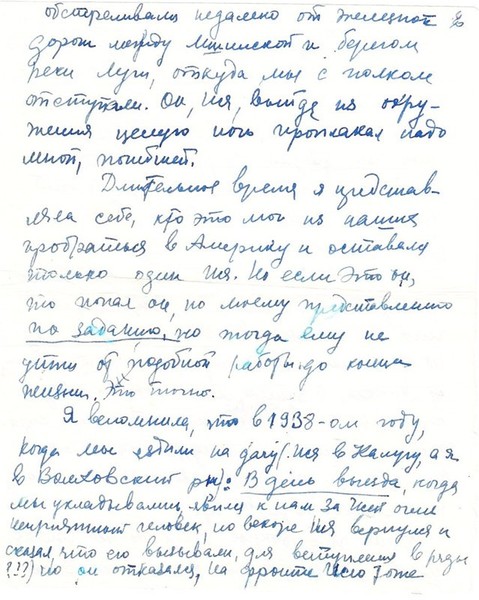 обстреливали недалеко от железной
дороги между Мшинской и берегом
реки Луги, откуда мы с полком
отступали. Он, Ися, выйдя из окру-
жения целую ночь проплакал надо
мной, погибшей.
Длительное время я представ-
ляла себе, кто это мог из наших
пробраться в Америку и оставался
только один Ися. Но если это он,
то попал он, по моему представлению
по заданию, но тогда ему не
уйти от подобной работы до конца
жизни. Это точно.
Я вспомнила, что в 1938-ом году,
когда мы ездили на дачу (Ися в Калугу, а я
в Волховский р-н): В день выезда, когда
мы укладывались, явился к нам за Исей очень
неприятный человек, но вскоре Ися вернулся и
сказал, что его вызывали, для вступления в ряды
???) но он отказался, на фронте Исю тоже